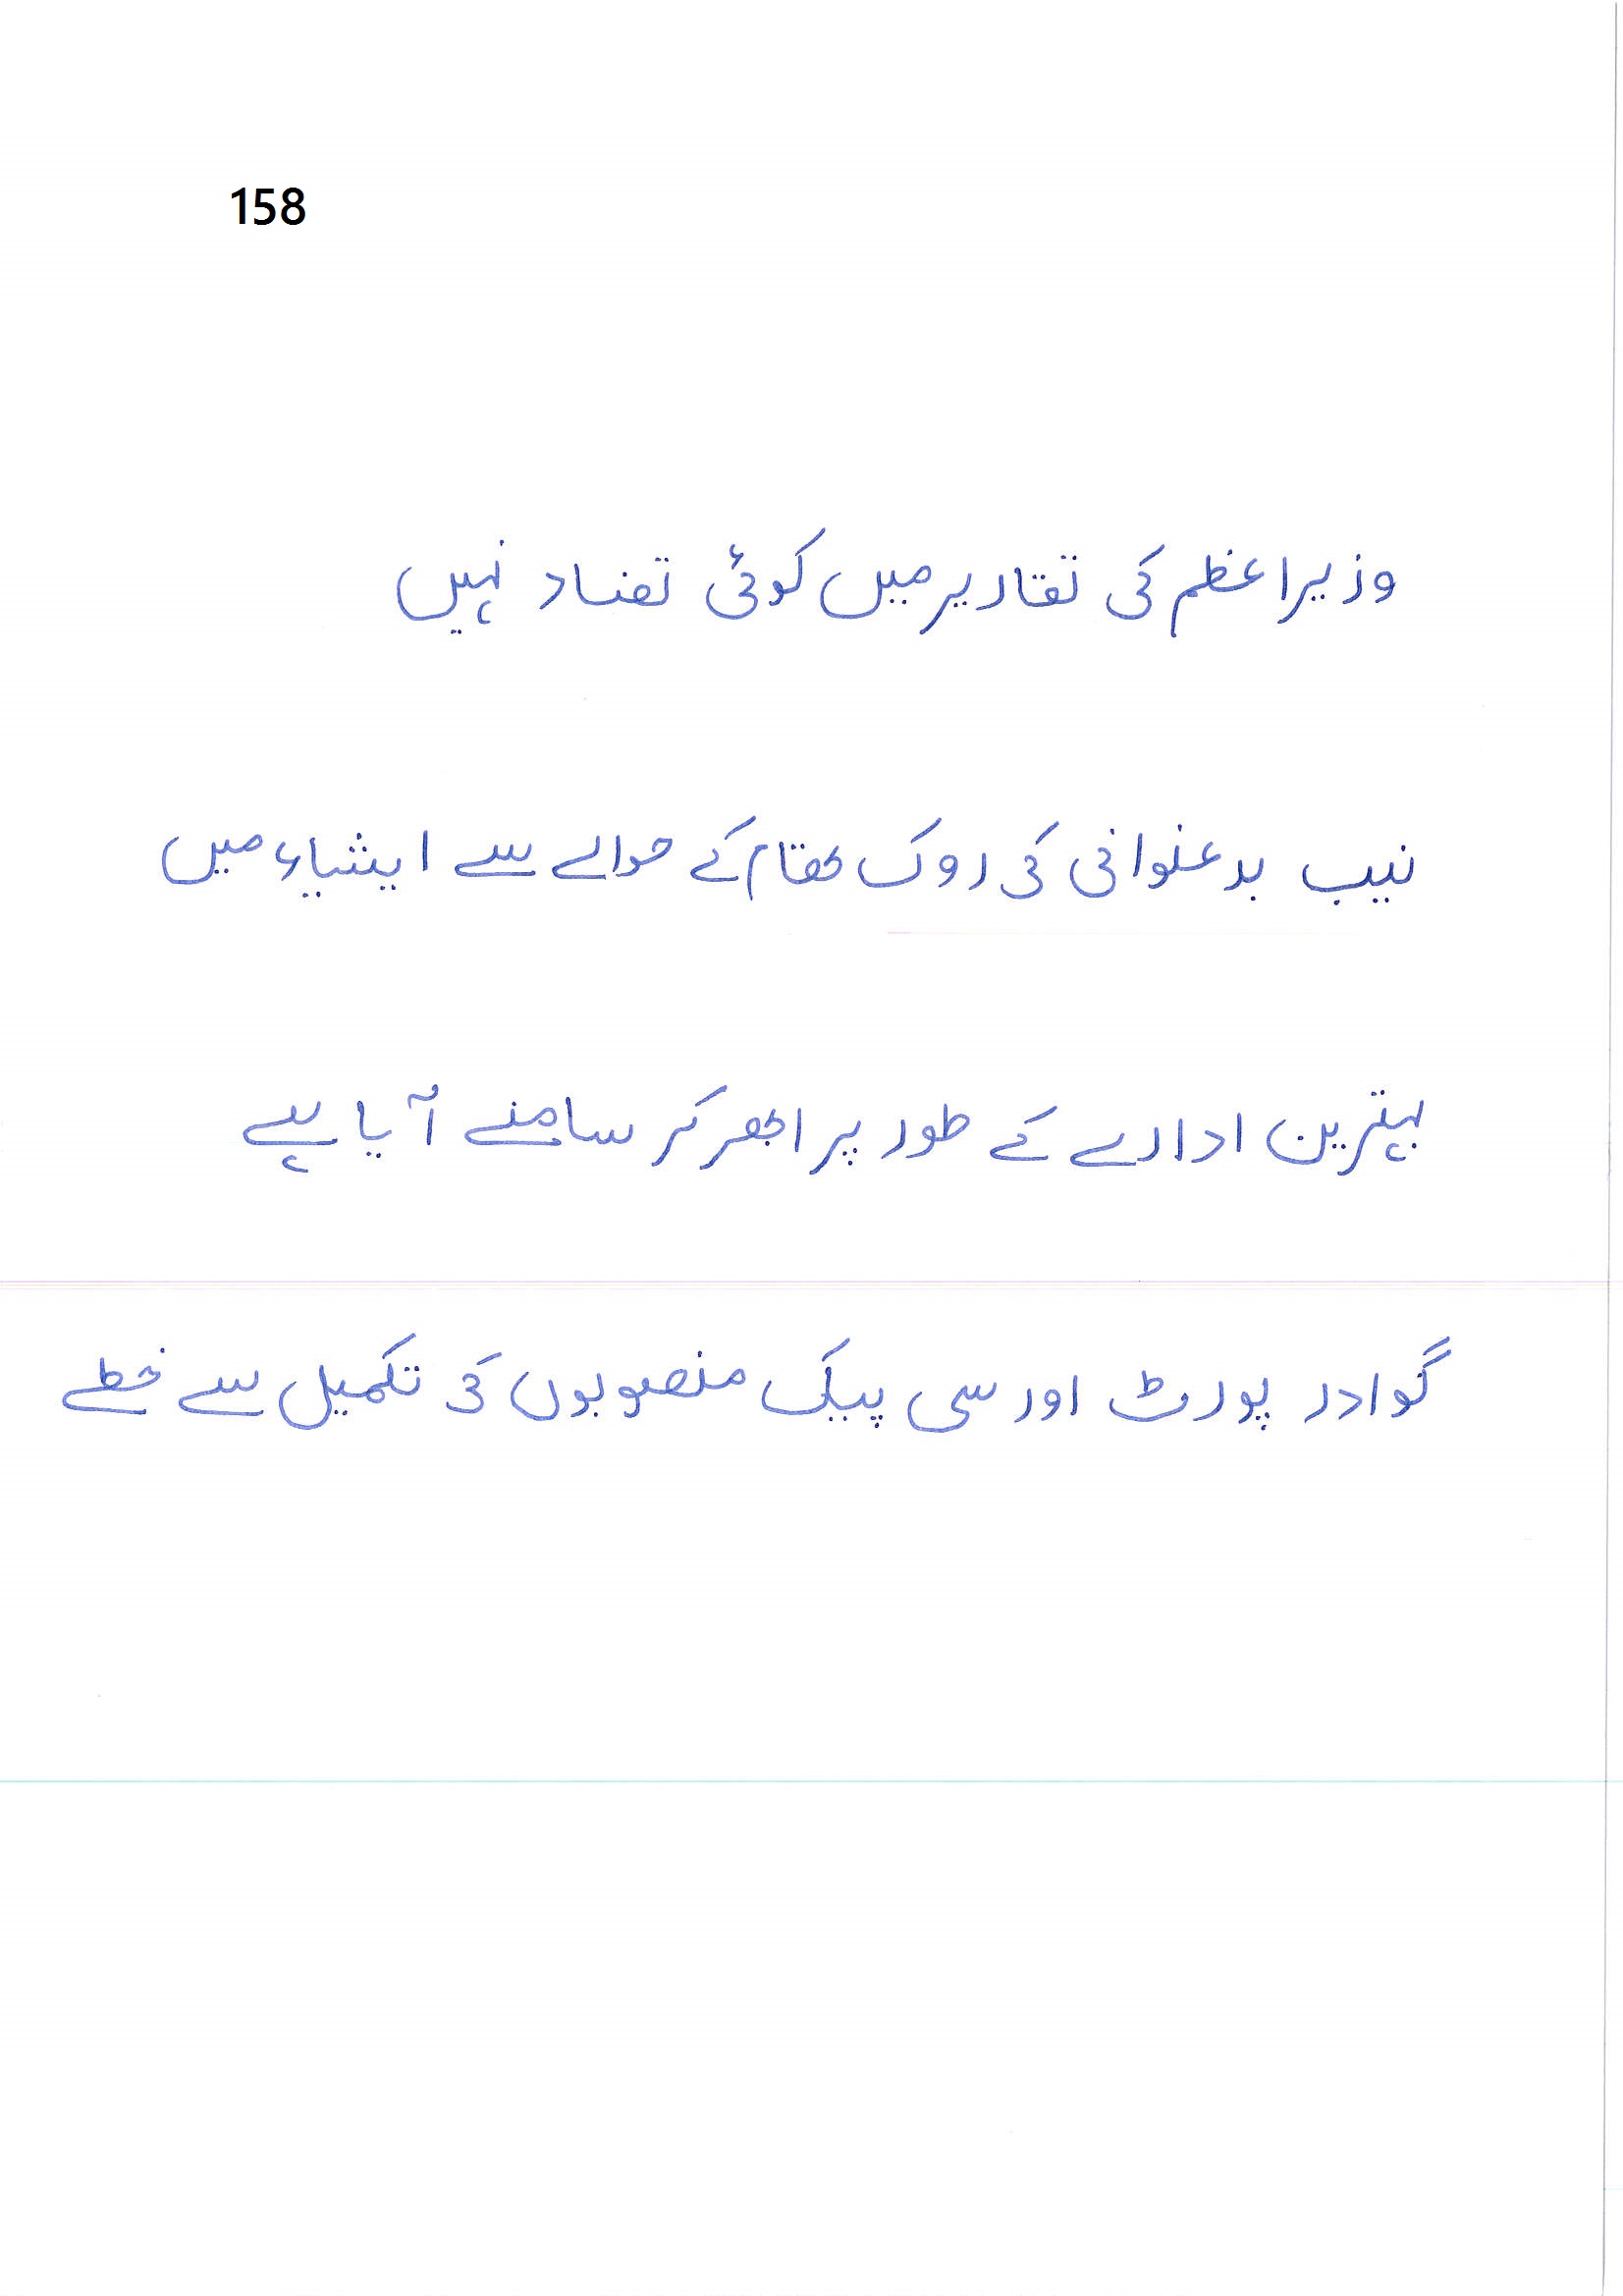 158
وزیراعظم کی تقاریر میں کوئی تضاد نہیں
نیب بدعنوانی کی روک تھام کے حوالے سے ایشیاء میں
بہترین ادارے کے طور پر ابھر کر سامنے آیا ہے
گوادر پورٹ اور سی پیک منصوبوں کی تکمیل سے خطے